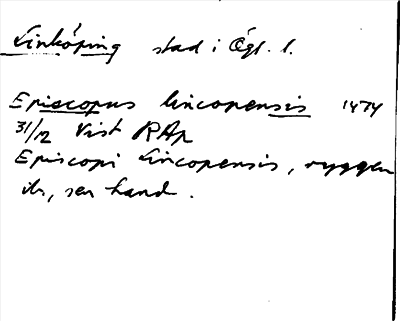 Linköping stad i Ögl. l.
Episcopus lincopensis 1474
31/12 Vist RAp
Episcopi Lincopensis, ryggen
ib., sen hand.